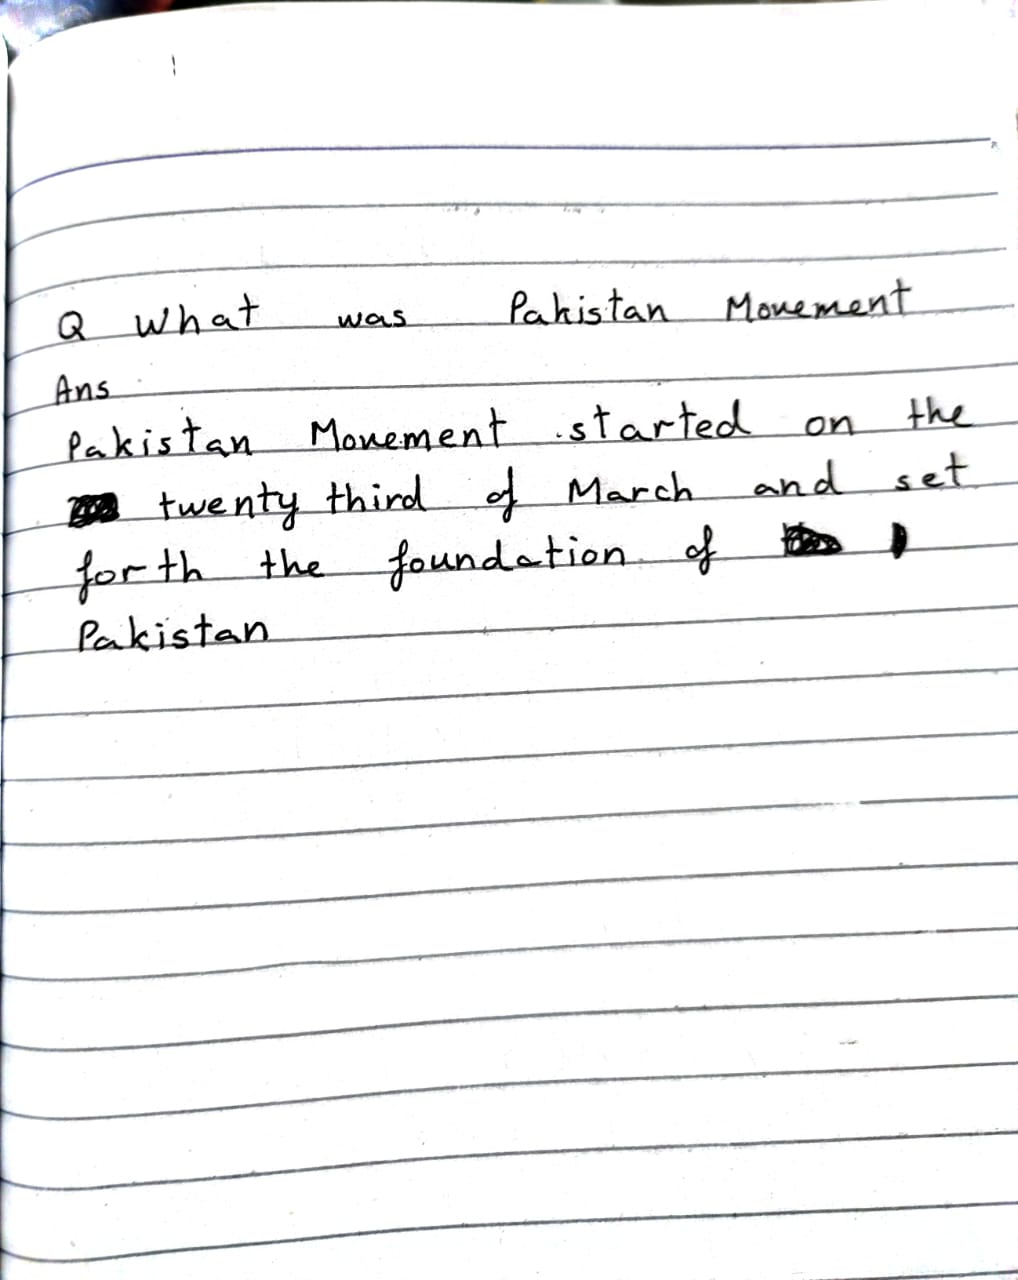 Q What was Pakistan Movement
Ans
Pakistan Movement started on the
twenty third of March and set
forth the foundation of
Pakistan